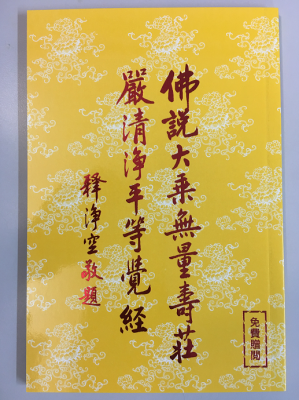 佛說大乘無量壽莊
嚴清淨平等覺經
釋淨空敬題
免費贈閱